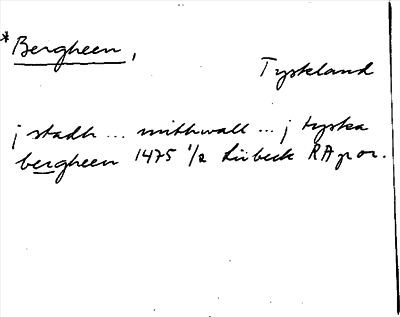 *Bergheen,
Tyskland
j stadh ... mithwall ... j tyska
bergheen 1475 1/2 Lübeck RAp or.